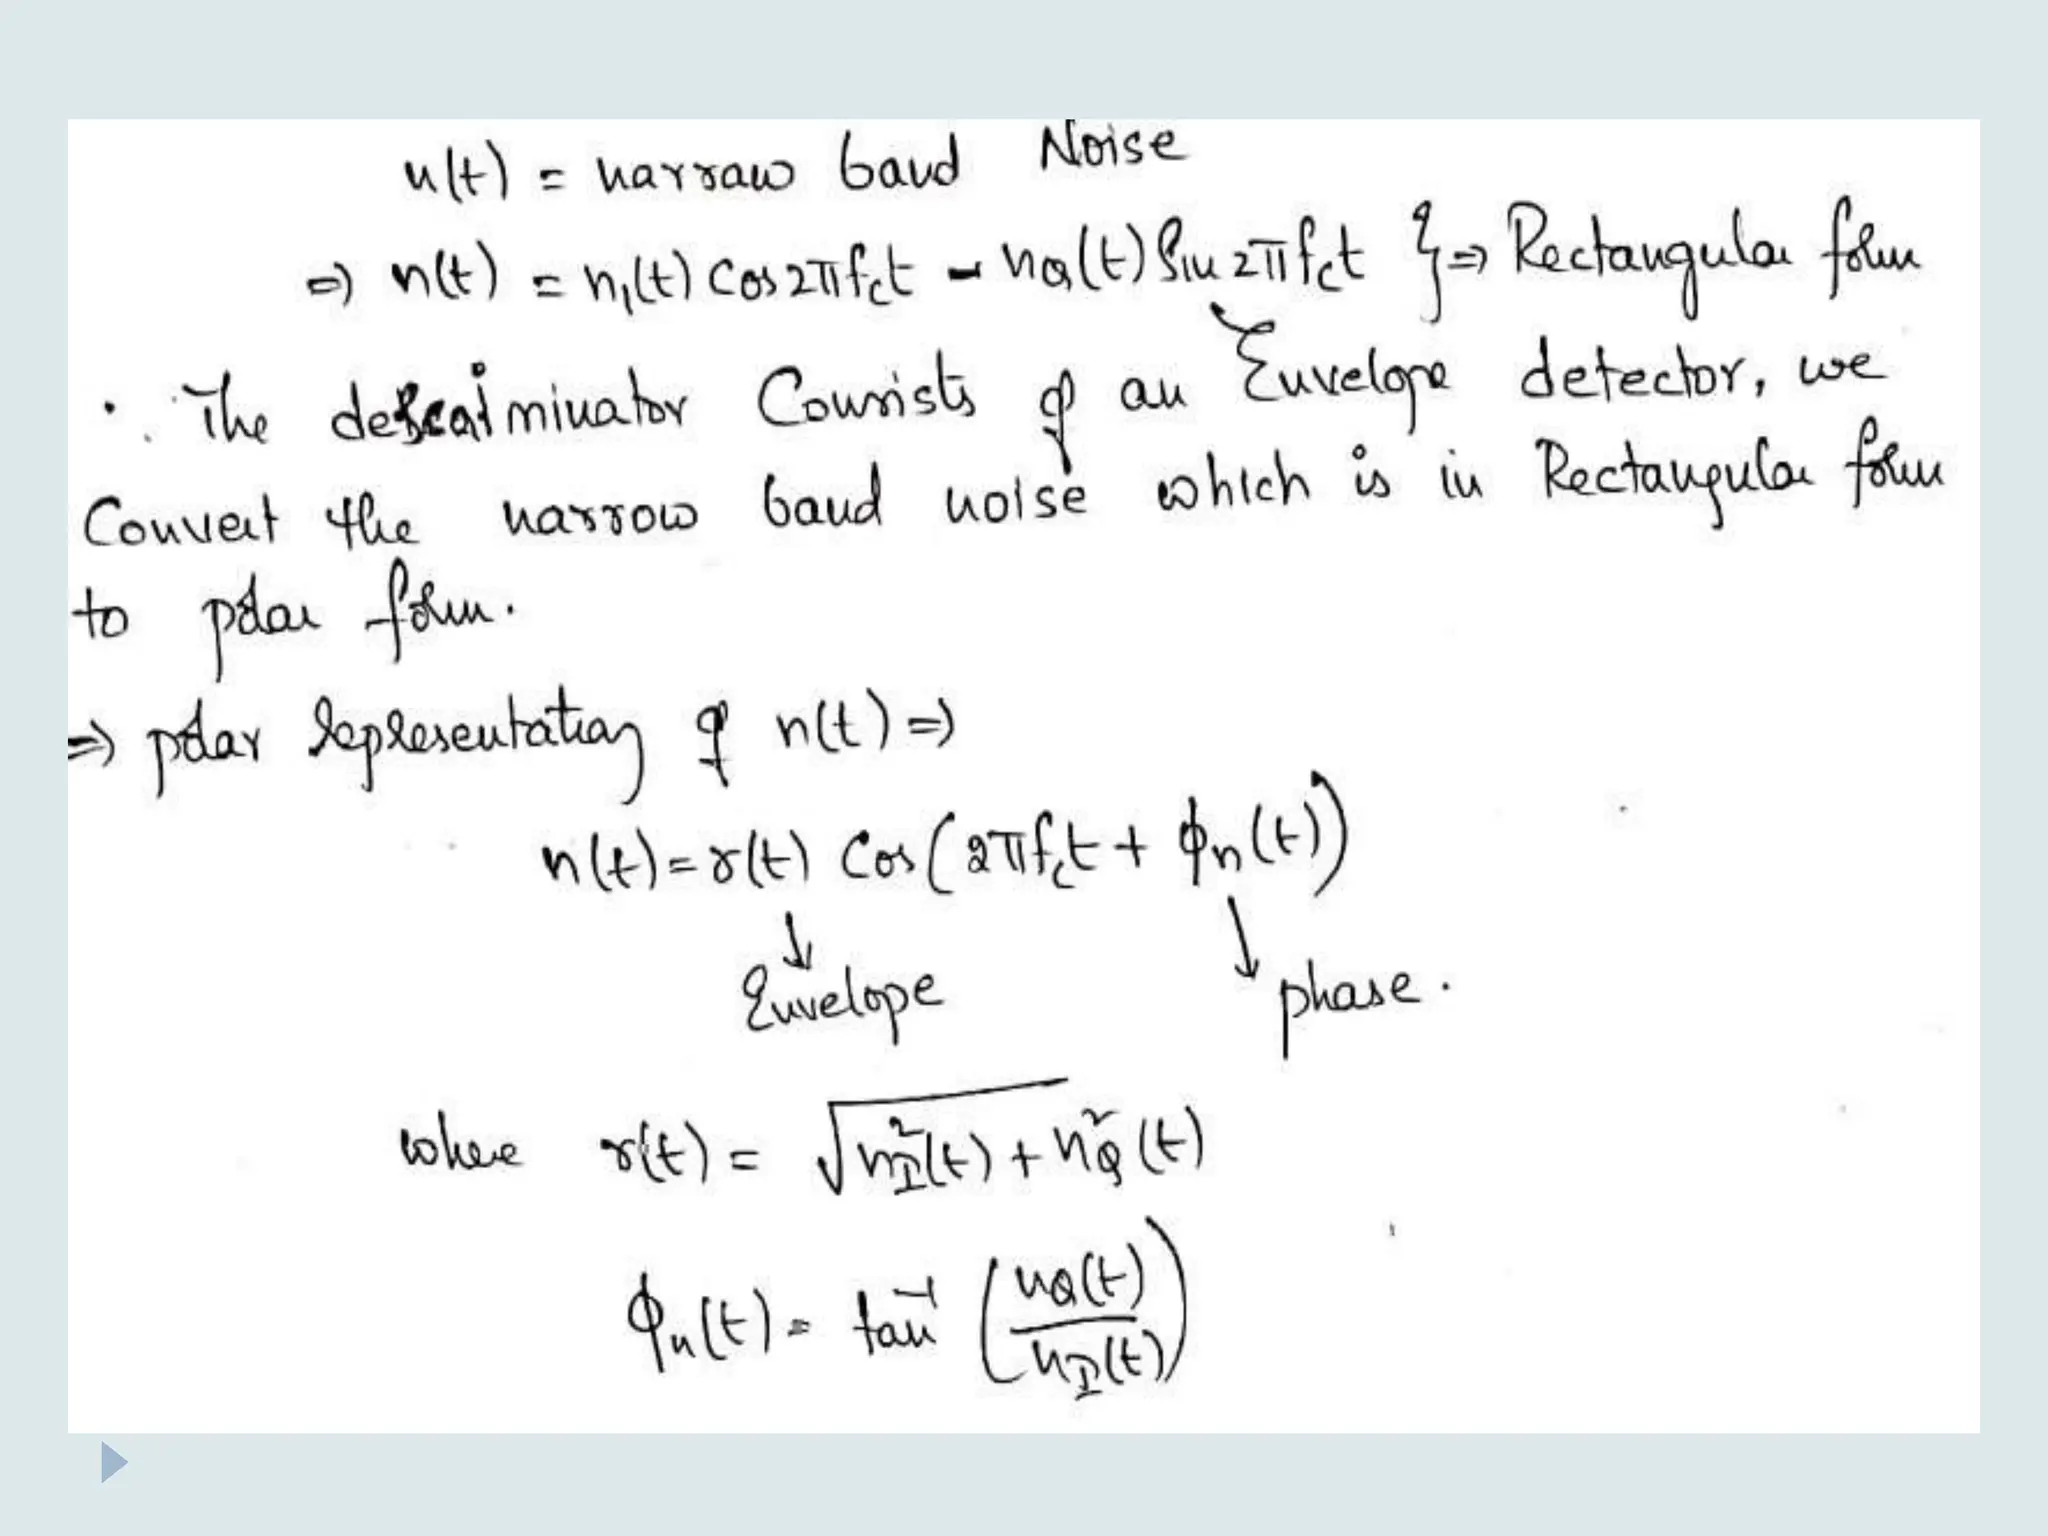 n(t) = narraw band Noise
⇒ n(t) = n₁(t) Cos 2πfct - nQ(t) Sin 2πfct } ⇒ Rectangular form
∴ The descriminator Consists of an Envelope detector, we
Convert the narrow band noise which is in Rectangular form
to polar form.
⇒ polar representation of n(t) ⇒
n(t) = r(t) Cos(2πfct + ϕn(t))
↓ ↓
Envelope phase.
where r(t) = √nI²(t) + nQ²(t)
ϕn(t) = tan⁻¹ (nQ(t)/nI(t))